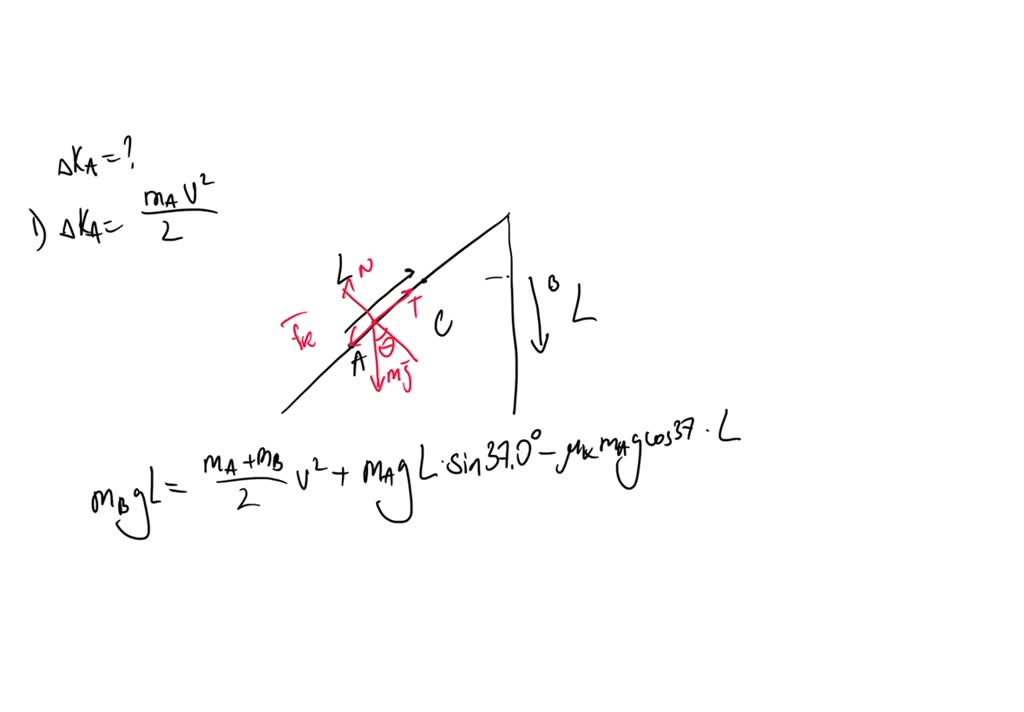 ΔK_A = ?
1) ΔK_A = m_A v² / 2
L N
T
f_k
B L
C
θ
A
mg
m_B g L = (m_A + m_B)/2 v² + m_A g L · sin 37.0° - μ_k m_A g cos 37 · L